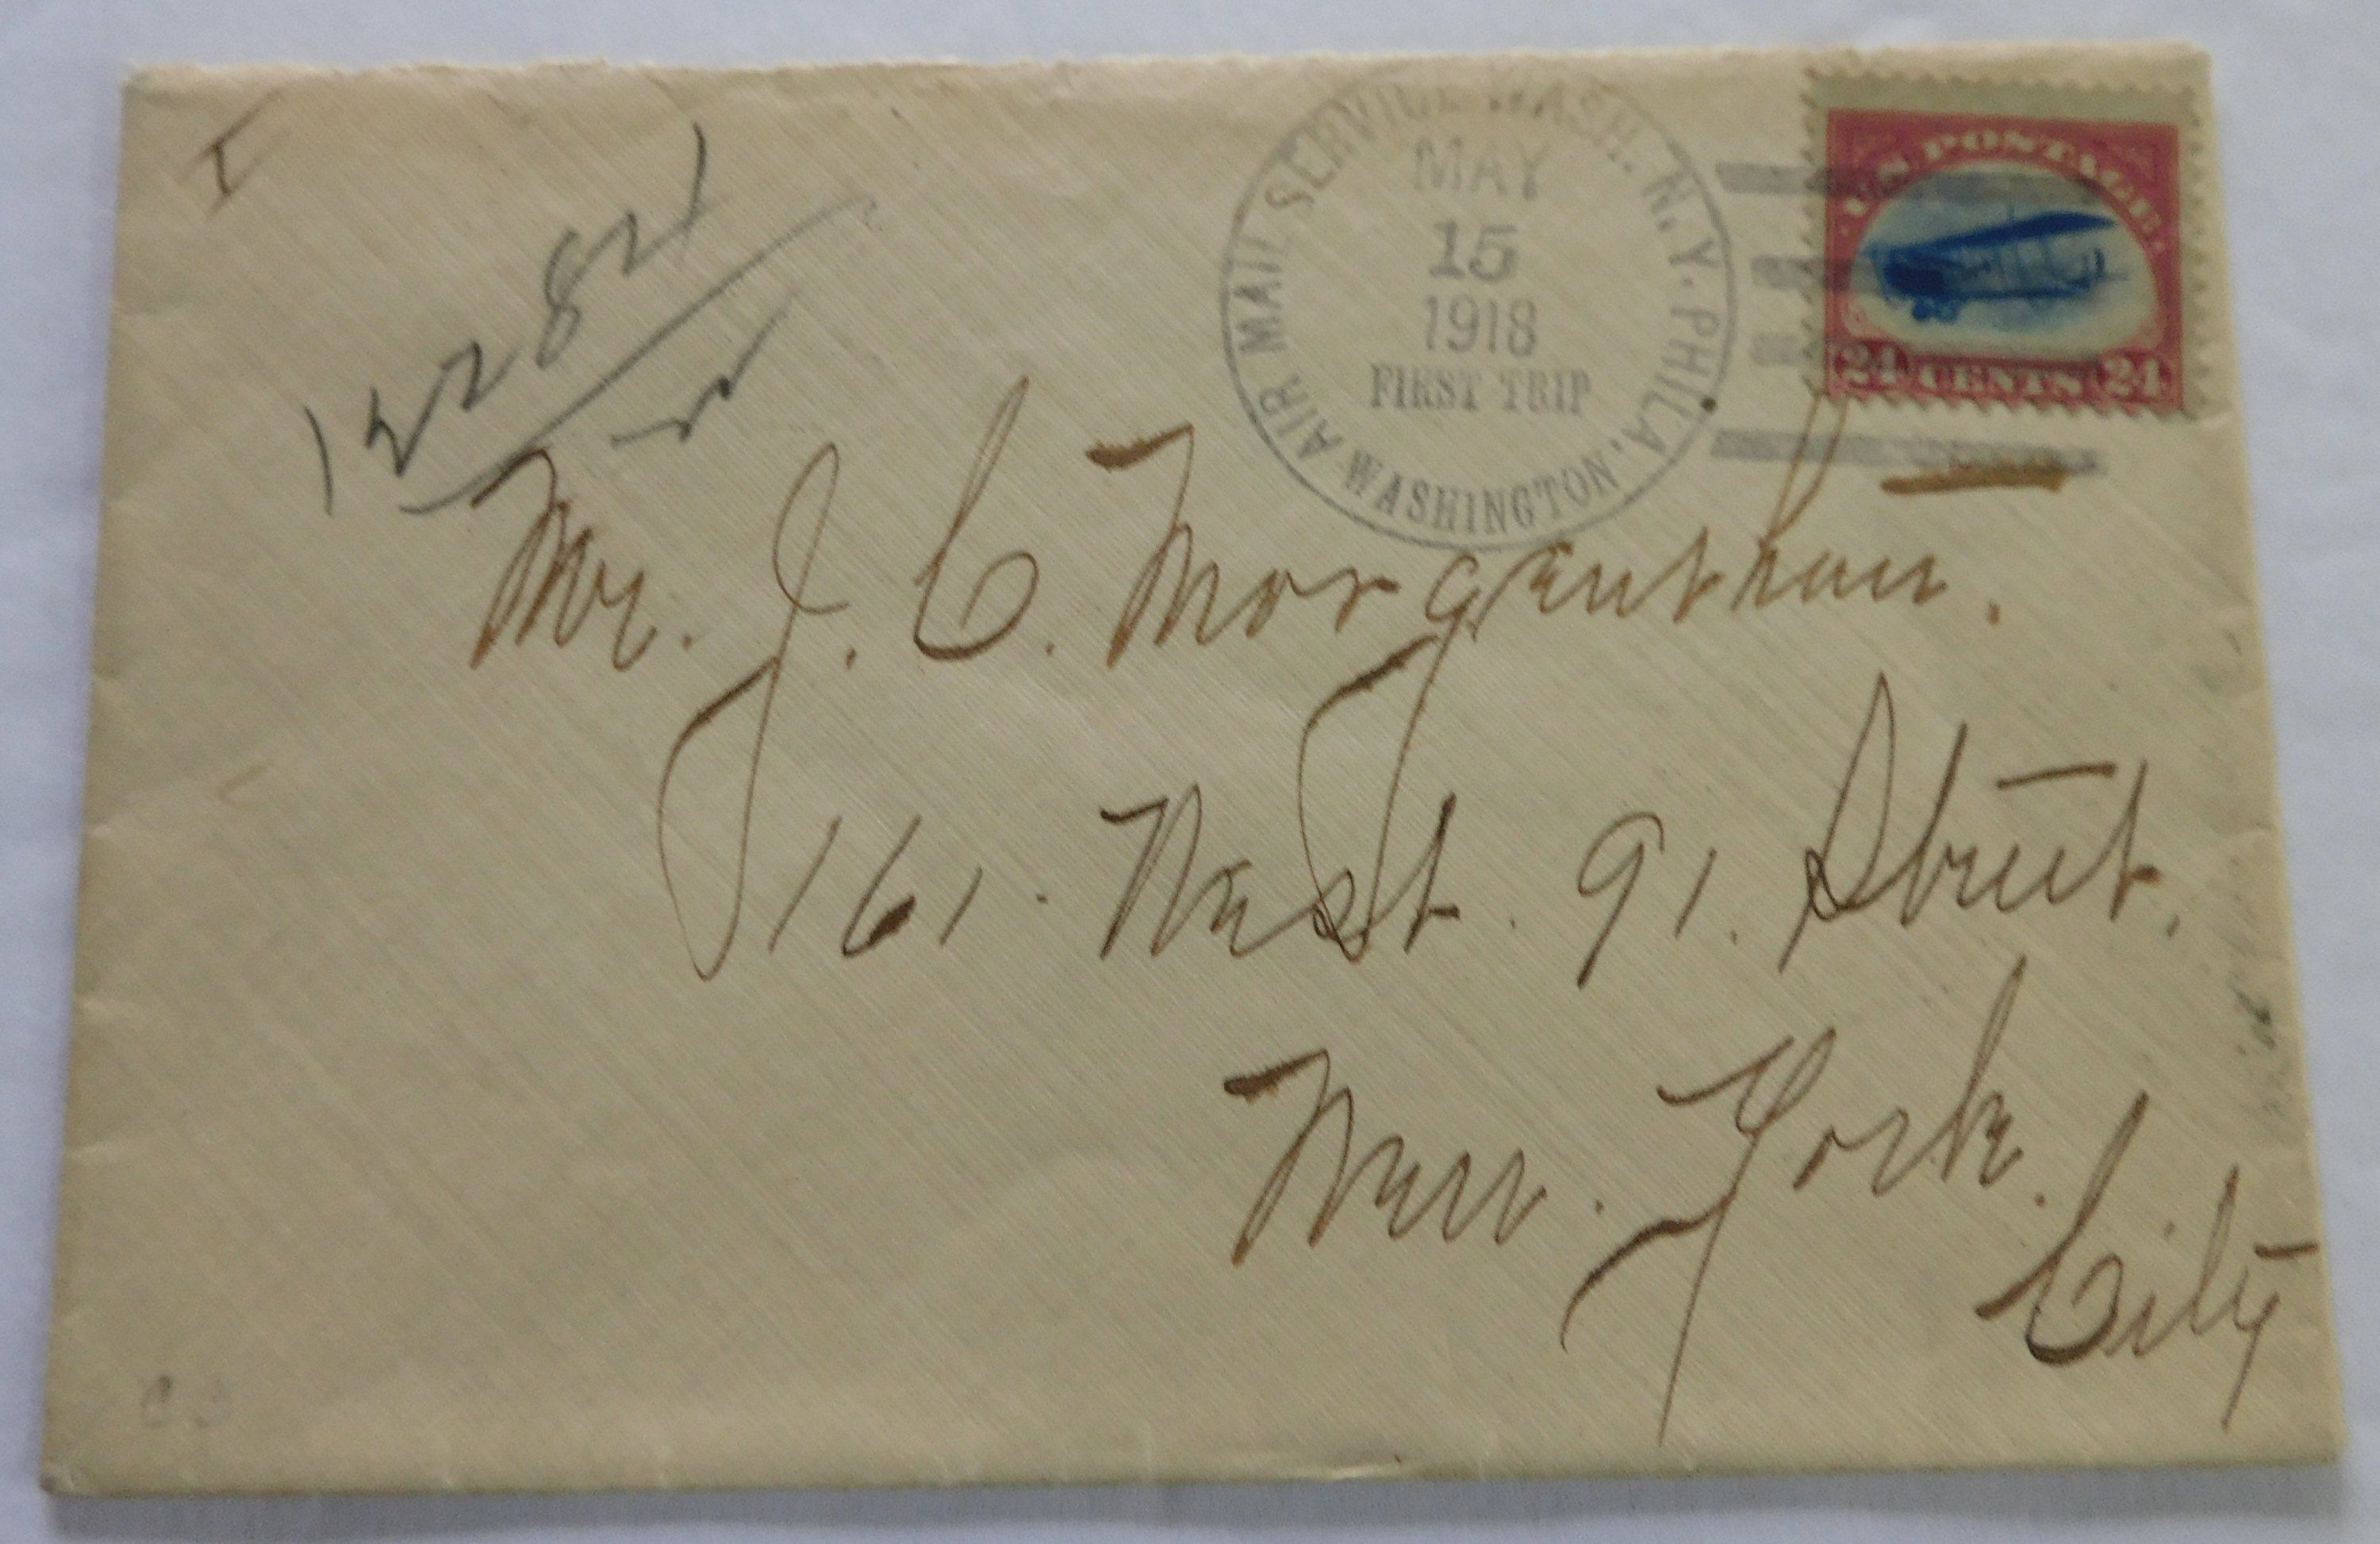 I
AIR MAIL SERVICE WASH. N.Y. PHILA.
MAY
15
1918
FIRST TRIP
WASHINGTON.
U.S. POSTAGE
24 CENTS 24
Mr. J. C. Morgenthau.
161. West. 91. Street.
New. York.
City